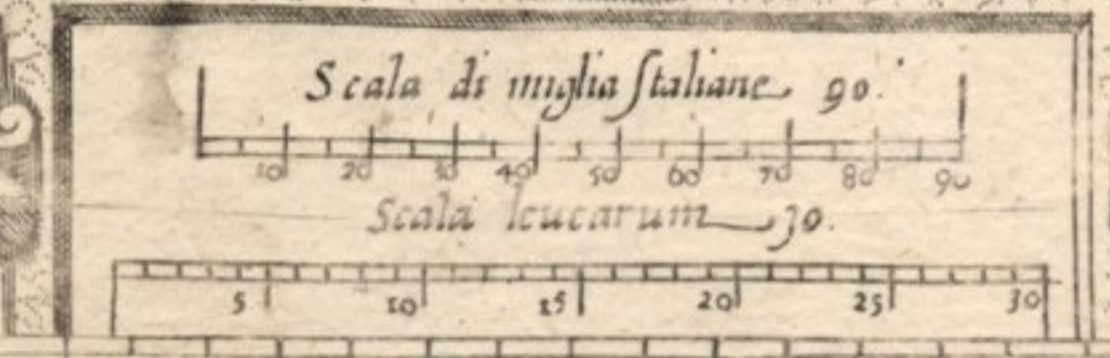 Scala di miglia Italiane 90.
10 20 30 40 50 60 70 80 90
Scala leucarum 30.
5 10 15 20 25 30